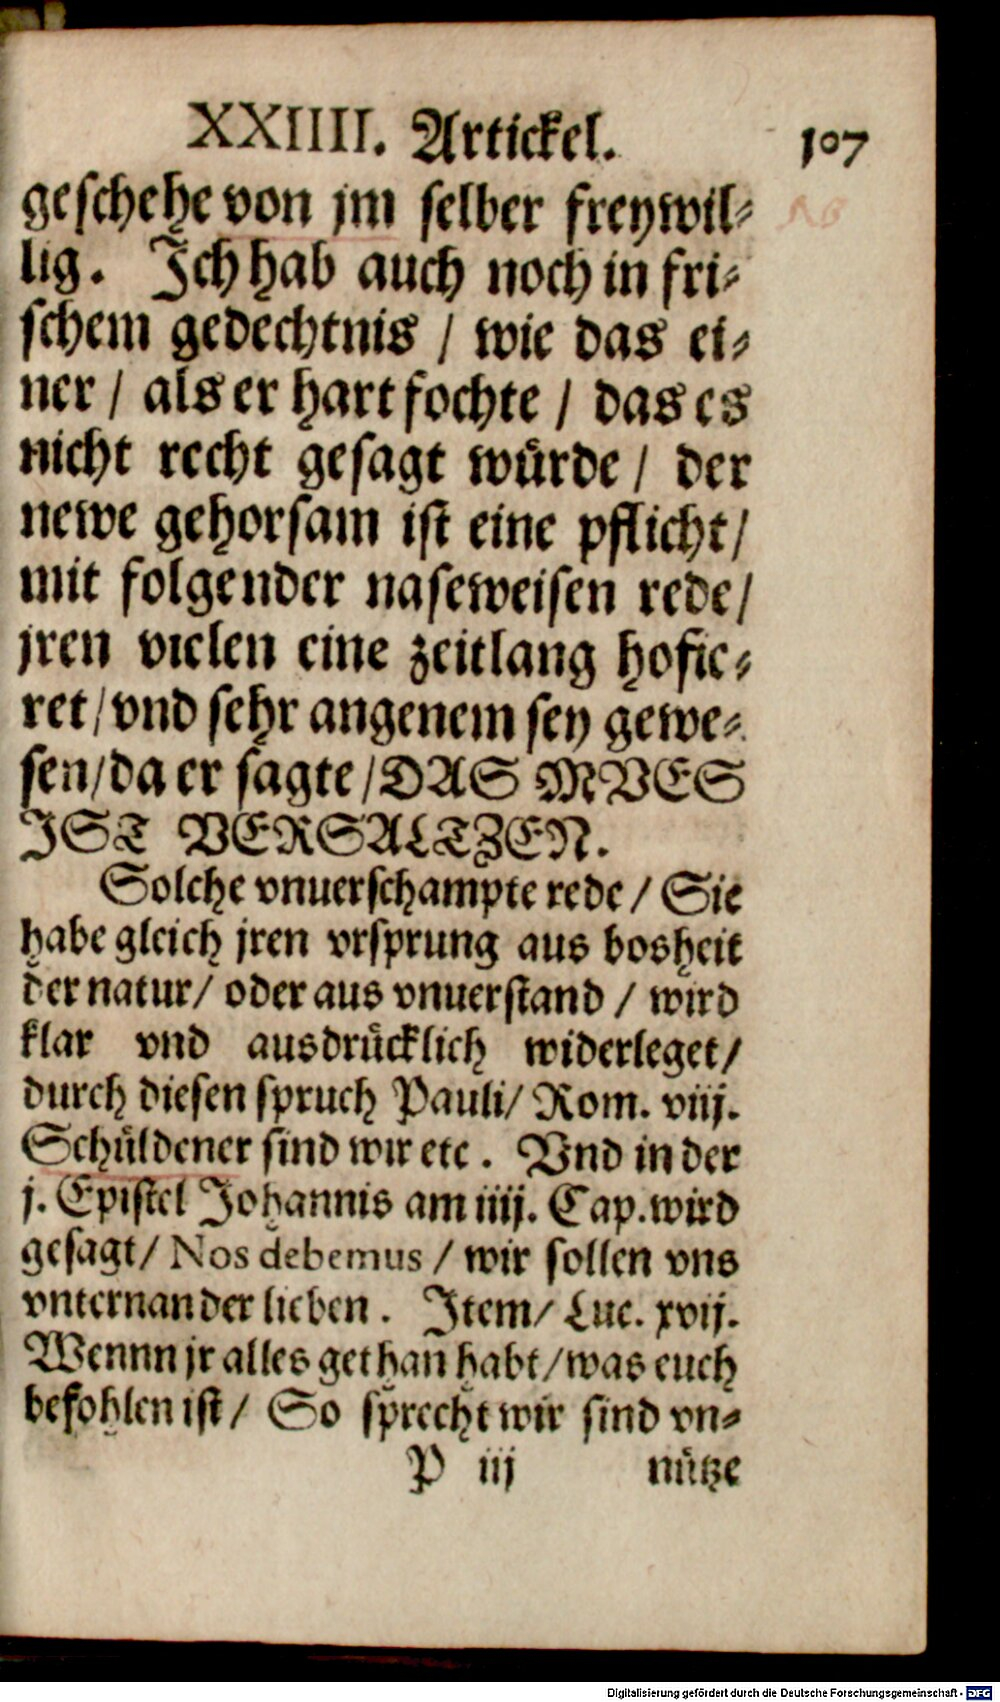 XXIIII. Artickel. 107
geschehe von jm selber freywil⸗
lig. Ich hab auch noch in fri⸗
schem gedechtnis / wie das ei⸗
ner / als er hart fochte / das es
nicht recht gesagt würde / der
newe gehorsam ist eine pflicht /
mit folgender naseweisen rede /
jren vielen eine zeitlang hofie⸗
ret / vnd sehr angenem sey gewe⸗
sen / da er sagte / DAS MVES
IST VERSALTZEN.
Solche vnuerschampte rede / Sie
habe gleich jren vrsprung aus bosheit
der natur / oder aus vnuerstand / wird
klar vnd ausdrücklich widerleget /
durch diesen spruch Pauli / Rom. viij.
Schüldener sind wir etc. Vnd in der
j. Epistel Johannis am iiij. Cap. wird
gesagt / Nos debemus / wir sollen vns
vnternander lieben. Item / Luc. xvij.
Wennn jr alles gethan habt / was euch
befohlen ist / So sprecht wir sind vn⸗
P iij nütze
Digitalisierung gefördert durch die Deutsche Forschungsgemeinschaft - DFG